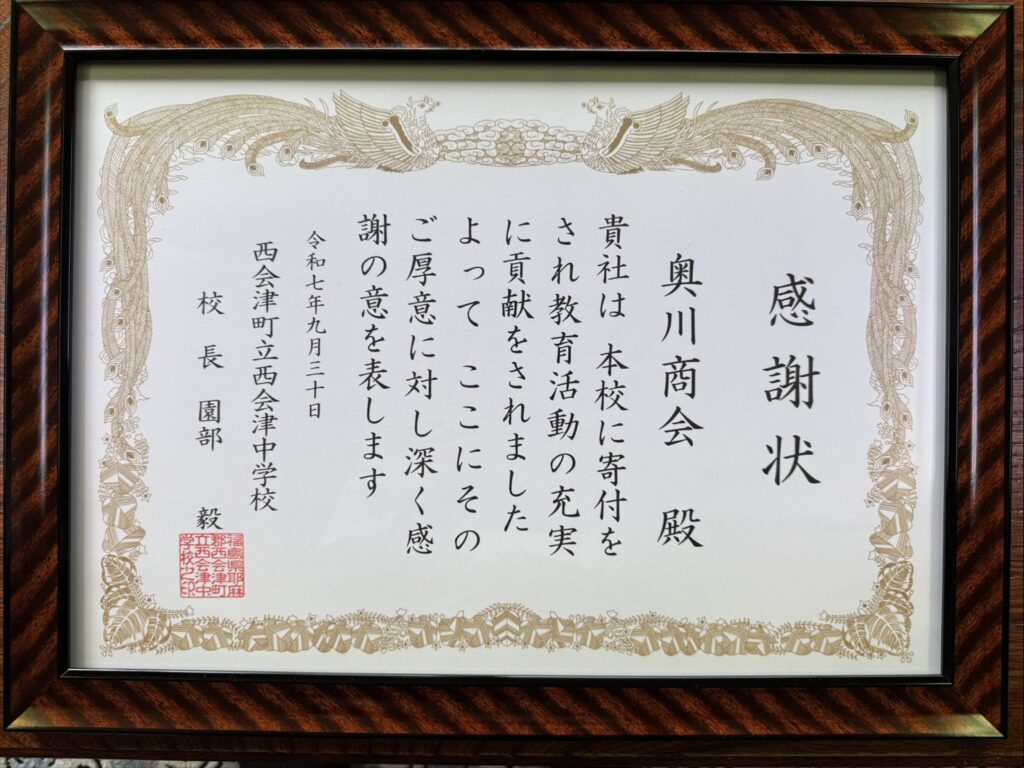 感謝状
奥川商会 殿
貴社は 本校に寄付を
され教育活動の充実
に貢献をされました
よって ここにその
ご厚意に対し深く感
謝の意を表します
令和七年九月三十日
西会津町立西会津中学校
校長 園部 毅
福島県耶麻
郡西会津町
立西会津中
学校之印